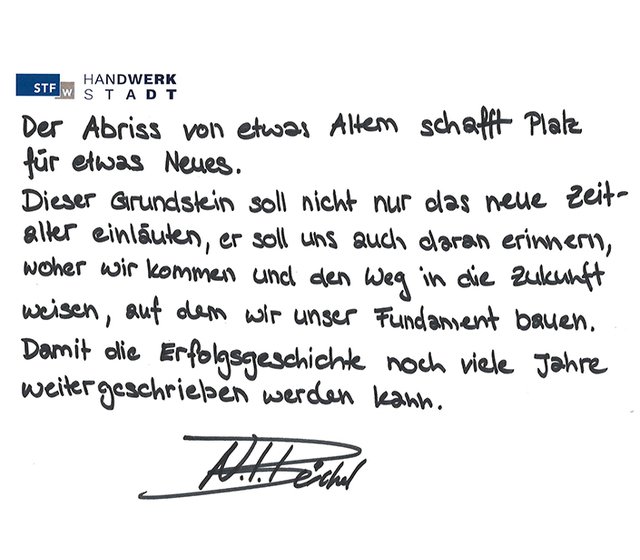 STF W HANDWERK
STADT
Der Abriss von etwas Altem schafft Platz
für etwas Neues.
Dieser Grundstein soll nicht nur das neue Zeit-
alter einläuten, er soll uns auch daran erinnern,
woher wir kommen und den Weg in die Zukunft
weisen, auf dem wir unser Fundament bauen.
Damit die Erfolgsgeschichte noch viele Jahre
weitergeschrieben werden kann.